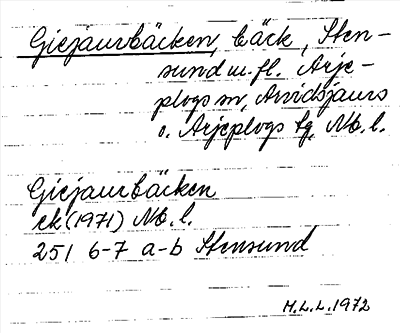 Giejaurbäcken, bäck, Sten-
sund m. fl. Arje-
plogs sn, Arvidsjaurs
o. Arjeplogs tg, Nb. l.
Giejaurbäcken
ek (1971) Nb. l.
25I 6-7 a-b Stensund
M.L.L. 1972